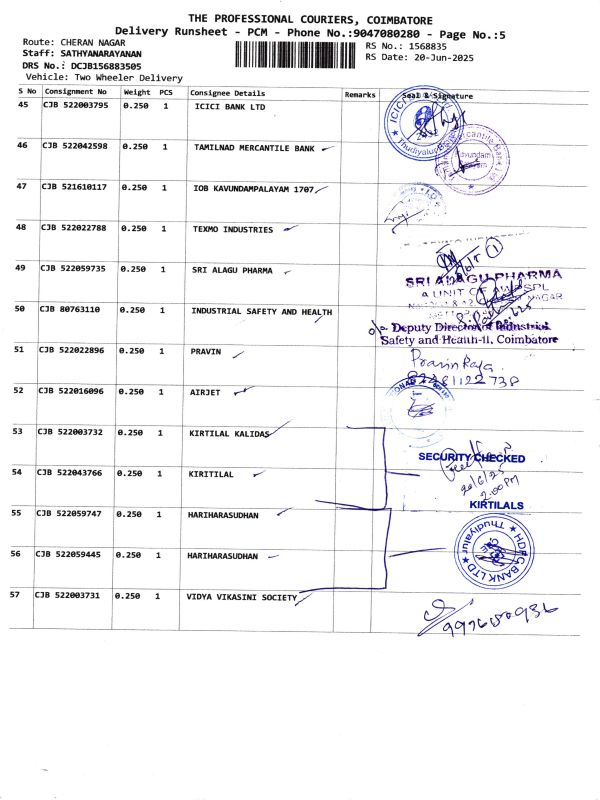 THE PROFESSIONAL COURIERS, COIMBATORE
Delivery Runsheet - PCM - Phone No.:9047080280 - Page No.:5
Route: CHERAN NAGAR RS No.: 1568835
Staff: SATHYANARAYANAN RS Date: 20-Jun-2025
DRS No.: DCJB156883505
Vehicle: Two Wheeler Delivery
S No Consignment No Weight PCS Consignee Details Remarks Seal & Signature
45 CJB 522003795 0.250 1 ICICI BANK LTD
46 CJB 522042598 0.250 1 TAMILNAD MERCANTILE BANK
47 CJB 521610117 0.250 1 IOB KAVUNDAMPALAYAM 1707
48 CJB 522022788 0.250 1 TEXMO INDUSTRIES
49 CJB 522059735 0.250 1 SRI ALAGU PHARMA
SRI ALAGU PHARMA
50 CJB 80763110 0.250 1 INDUSTRIAL SAFETY AND HEALTH
Deputy Director of Industrial
Safety and Health-II, Coimbatore
51 CJB 522022896 0.250 1 PRAVIN
52 CJB 522016096 0.250 1 AIRJET
53 CJB 522003732 0.250 1 KIRTILAL KALIDAS
SECURITY CHECKED
54 CJB 522043766 0.250 1 KIRITILAL
20/6/25
2:00PM
KIRTILALS
55 CJB 522059747 0.250 1 HARIHARASUDHAN
HDFC BANK LTD
Thudiyalur
56 CJB 522059445 0.250 1 HARIHARASUDHAN
57 CJB 522003731 0.250 1 VIDYA VIKASINI SOCIETY